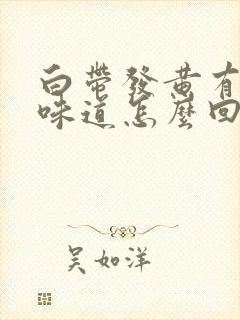 白帶發黄有
味道怎麼回
吴如洋